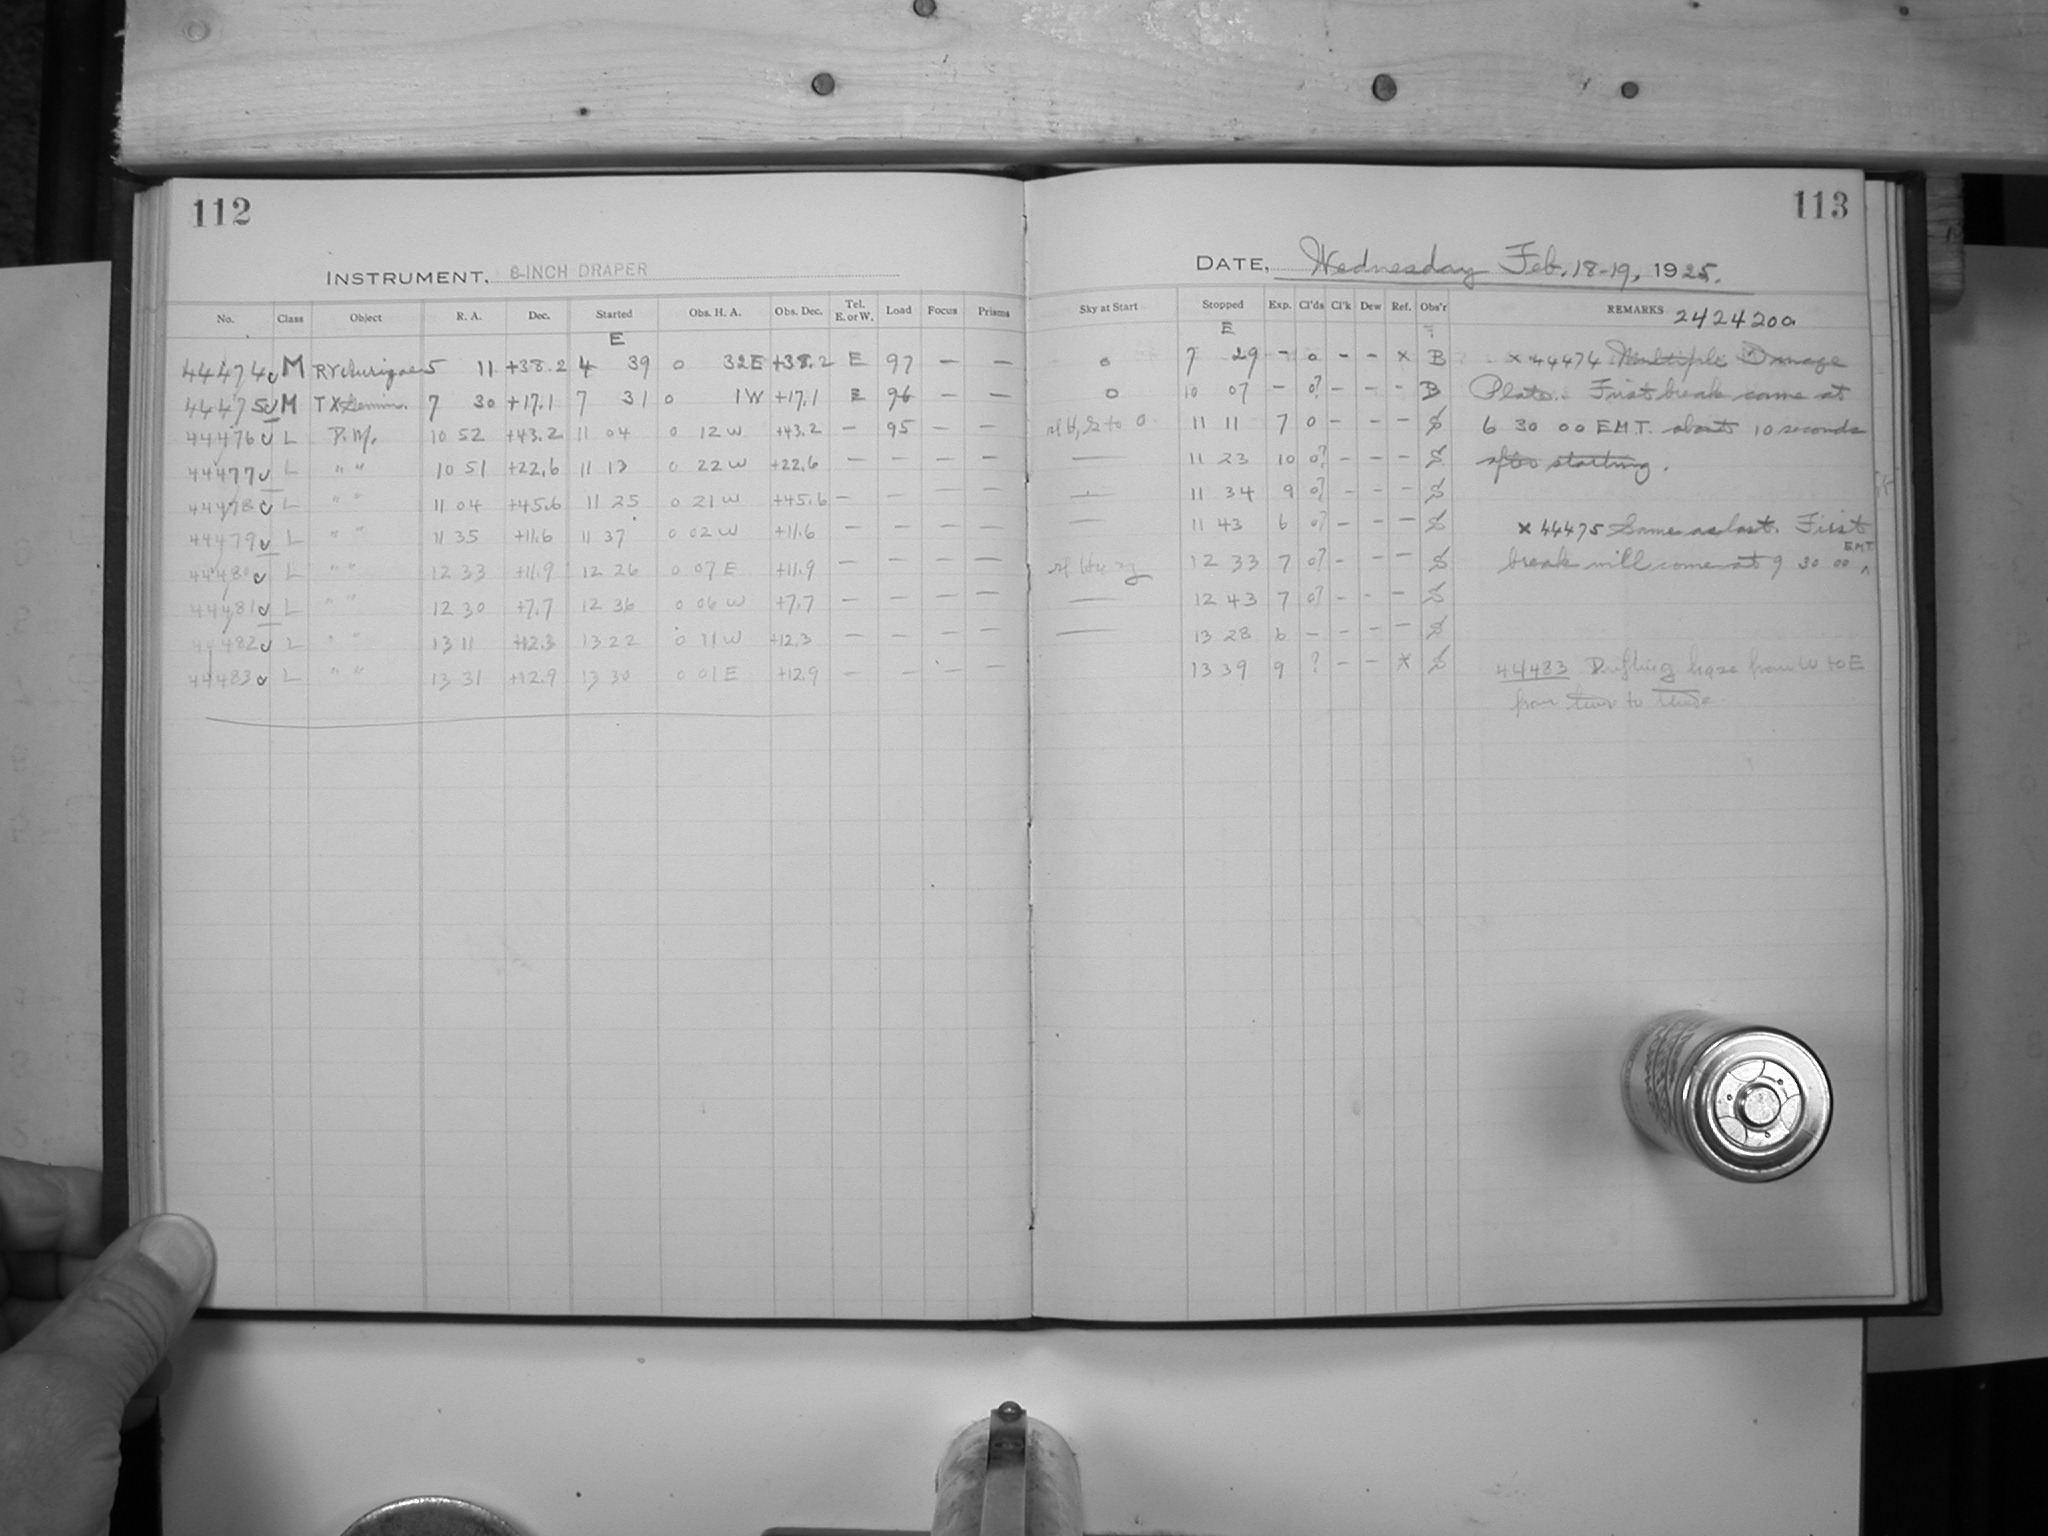 112
INSTRUMENT, 8-INCH DRAPER
No. Class Object R. A. Dec. Started Obs. H. A. Obs. Dec. Tel. E. or W. Load Focus Prisms
E
44474 M RY Aurigae 5 11 +38.2 4 39 0 32E +38.2 E 97 — —
44475 M TX Gemin. 7 30 +17.1 7 31 0 1W +17.1 E 96 — —
44476 L D.M. 10 52 +43.2 11 04 0 12 W +43.2 — 95 — —
44477 L " " 10 51 +22.6 11 13 0 22 W +22.6 — — — —
44478 L " " 11 04 +45.6 11 25 0 21 W +45.6 — — — —
44479 L " " 11 35 +11.6 11 37 0 02 W +11.6 — — — —
44480 L " " 12 33 +11.9 12 26 0 07 E +11.9 — — — —
44481 L " " 12 30 +7.7 12 36 0 06 W +7.7 — — — —
44482 L " " 13 11 +12.3 13 22 0 11 W +12.3 — — — —
44483 L " " 13 31 +12.9 13 30 0 01 E +12.9 — — — —
113
DATE, Wednesday Feb. 18-19, 1925.
Sky at Start Stopped Exp. Cl'ds Cl'k Dew Ref. Obs'r REMARKS 2424200
E
0 7 29 – 0 – – x B x 44474 Multiple Image
0 10 07 – 0? – – – B Plate. First break came at
to 0 11 11 7 0 – – – S 6 30 00 E.M.T. about 10 seconds
— 11 23 10 0? – – – S after starting.
— 11 34 9 0? – – – S
— 11 43 6 0? – – – S x 44475 Same as last. First
12 33 7 0? – – – S break will come at 9 30 00 EMT
— 12 43 7 0? – – – S
— 13 28 6 – – – – S
13 39 9 ? – – x S 44483 Drifting haze from W to E
from to